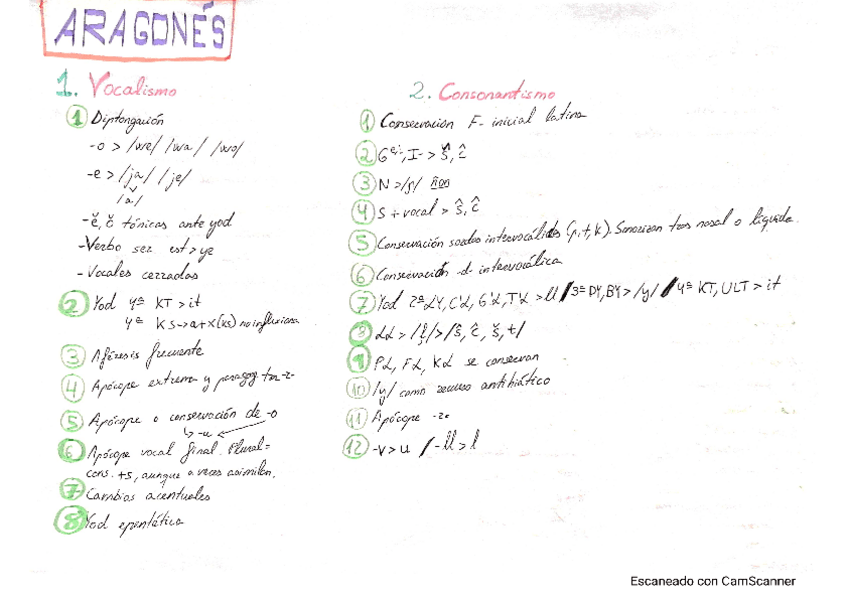 ARAGONÉS
1. Vocalismo
1 Diptongación
-o > /we/ /wa/ /wo/
-e > /ja/ /je/
/a/
-ĕ, ŏ tónicas ante yod
-Verbo ser est > ye
- Vocales cerradas
2 Yod 4ª KT > it
4ª KS -> a+X(ks) no inflexiona
3 Aféresis frecuente
4 Apócope extrema y paragog
5 Apócope o conservación de -o
↳ -u
6 Apócope vocal final. Plural=
cons. +s, aunque a veces asimilan.
7 Cambios acentuales
8 Yod epentética
2. Consonantismo
1 Conservación F- inicial latina
2 G e,i-, I- > š, ĉ
3 N > /ɲ/ ños
4 S + vocal > ŝ, ĉ
5 Conservación sordas intervocálicas (p,t,k). Sonorizan tras nasal o líquida.
6 Conservación -d- intervocálica
7 Yod 2ª LY, C'L, G'L, T'L > ll / 3ª DY, BY > /y/ / 4ª KT, ULT > it
8 LL > /ḷ/ > /ŝ, ĉ, š, t/
9 PL, FL, KL se conservan
10 /y/ como recurso antihiático
11 Apócope -re
12 -v > u / -ll > l
Escaneado con CamScanner